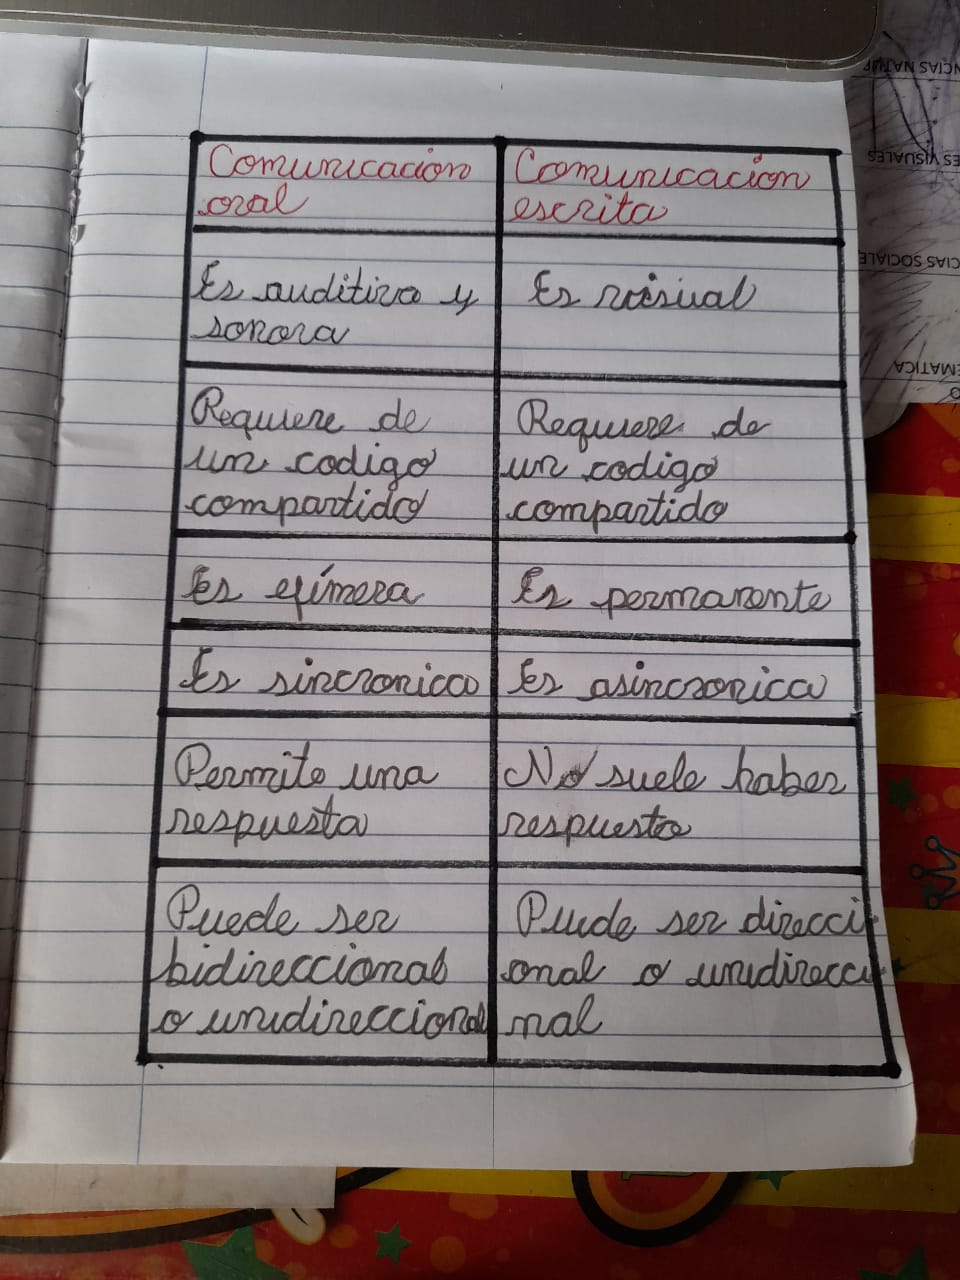 Comunicacion
oral
Comunicacion
escrita
Es auditiva y
sonora
Es visual
Requiere de
un codigo
compartido
Requiere de
un codigo
compartido
Es efímera
Es permanente
Es sincronica
Es asincronica
Permite una
respuesta
No suele haber
respuesta
Puede ser
bidireccional
o unidireccional
Puede ser direcci
onal o unidirecci
nal
NCIAS NATUR
ES VISUALES
CIAS SOCIALE
EMATICA